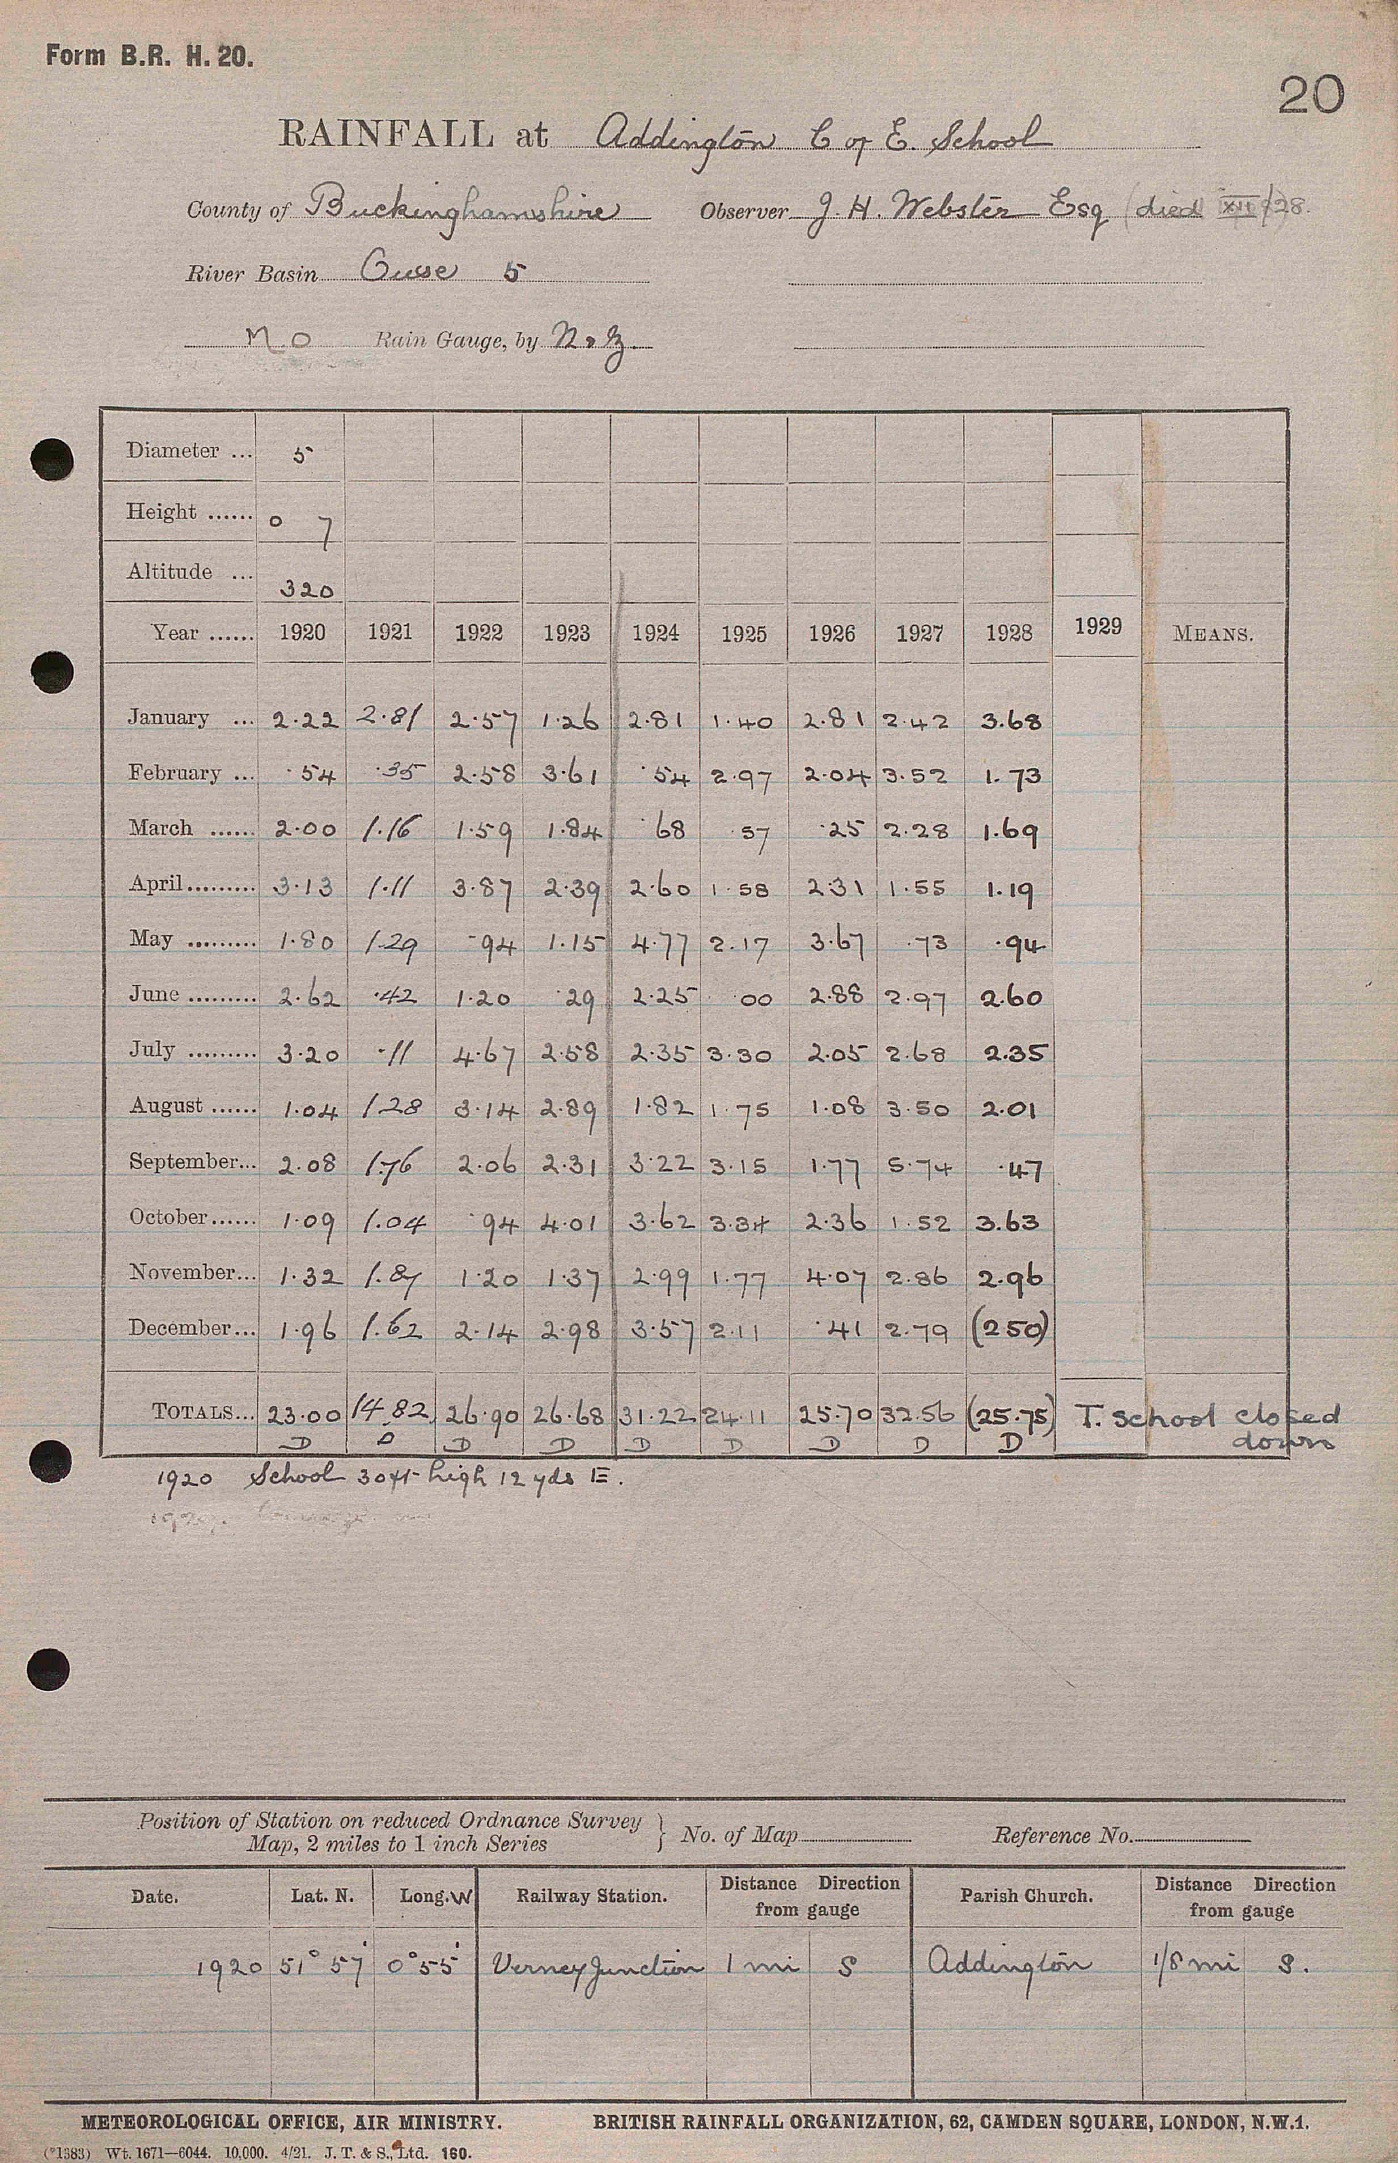 Form B.R. H. 20.
20
RAINFALL at Addington C of E. School
County of Buckinghamshire Observer J. H. Webster Esq (died XII/28.
River Basin Ouse 5
M O Rain Gauge, by N & Z.
Diameter ... 5
Height ...... 0 7
Altitude ... 320
Year ...... 1920 1921 1922 1923 1924 1925 1926 1927 1928 1929 MEANS.
January ... 2.22 2.81 2.57 1.26 2.81 1.40 2.81 2.42 3.68
February ... .54 .35 2.58 3.61 .54 2.97 2.04 3.52 1.73
March ...... 2.00 1.16 1.59 1.84 .68 .57 .25 2.28 1.69
April......... 3.13 1.11 3.87 2.39 2.60 1.58 2.31 1.55 1.19
May ......... 1.80 1.29 .94 1.15 4.77 2.17 3.67 .73 .94
June ......... 2.62 .42 1.20 .29 2.25 .00 2.88 2.97 2.60
July ......... 3.20 .11 4.67 2.58 2.35 3.30 2.05 2.68 2.35
August ...... 1.04 1.28 3.14 2.89 1.82 1.75 1.08 3.50 2.01
September... 2.08 1.76 2.06 2.31 3.22 3.15 1.77 5.74 .47
October...... 1.09 1.04 .94 4.01 3.62 3.34 2.36 1.52 3.63
November... 1.32 1.87 1.20 1.37 2.99 1.77 4.07 2.86 2.96
December... 1.96 1.62 2.14 2.98 3.57 2.11 .41 2.79 (2.50)
TOTALS... 23.00 14.82 26.90 26.68 31.22 24.11 25.70 32.56 (25.75) T. School closed
D D D D D D D D D down
1920 School 30ft high 12 yds E.
Position of Station on reduced Ordnance Survey
Map, 2 miles to 1 inch Series } No. of Map Reference No.
Date. Lat. N. Long. W Railway Station. Distance Direction from gauge Parish Church. Distance Direction from gauge
1920 51° 57' 0° 55' Verney Junction 1 mi S Addington 1/8 mi S.
METEOROLOGICAL OFFICE, AIR MINISTRY. BRITISH RAINFALL ORGANIZATION, 62, CAMDEN SQUARE, LONDON, N.W.1.
(*1383) Wt. 1671—6044. 10,000. 4/21. J. T. & S., Ltd. 160.